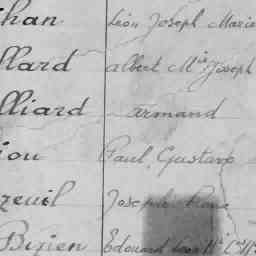 than Léon Joseph Marie
llard albert Mie Joseph
lliard armand
iou Paul Gustave
zeuil Joseph
Bizien Edouard